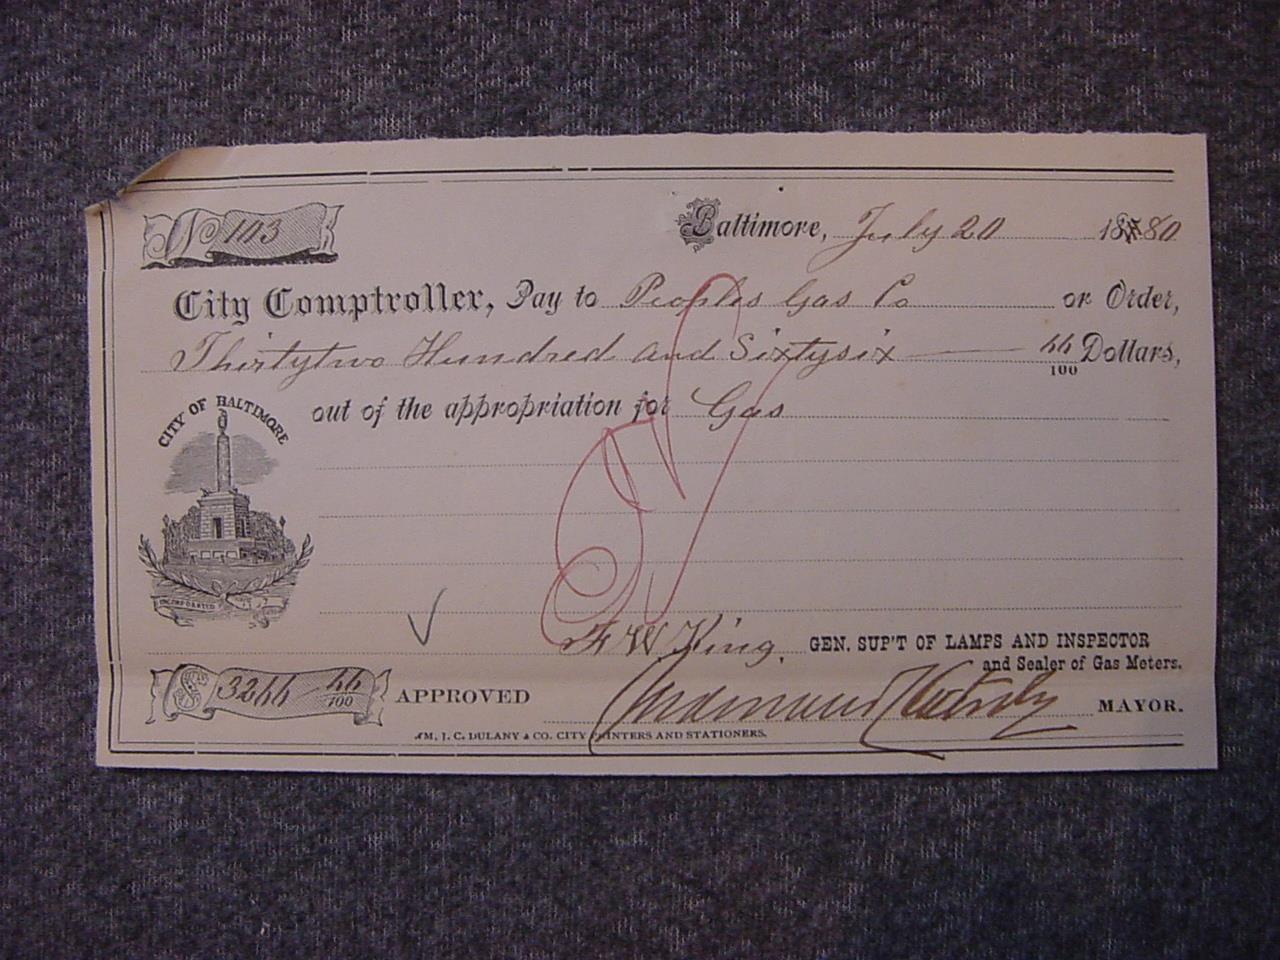 No 103
Baltimore, July 20 1880
City Comptroller, Pay to Peoples Gas Co or Order,
Thirtytwo Hundred and Sixtysix 66/100 Dollars,
CITY OF BALTIMORE
out of the appropriation for Gas
INCORPORATED
F W King. GEN. SUP'T OF LAMPS AND INSPECTOR
and Sealer of Gas Meters.
$ 3266 66/100 APPROVED MAYOR.
WM. J. C. DULANY & CO. CITY PRINTERS AND STATIONERS.